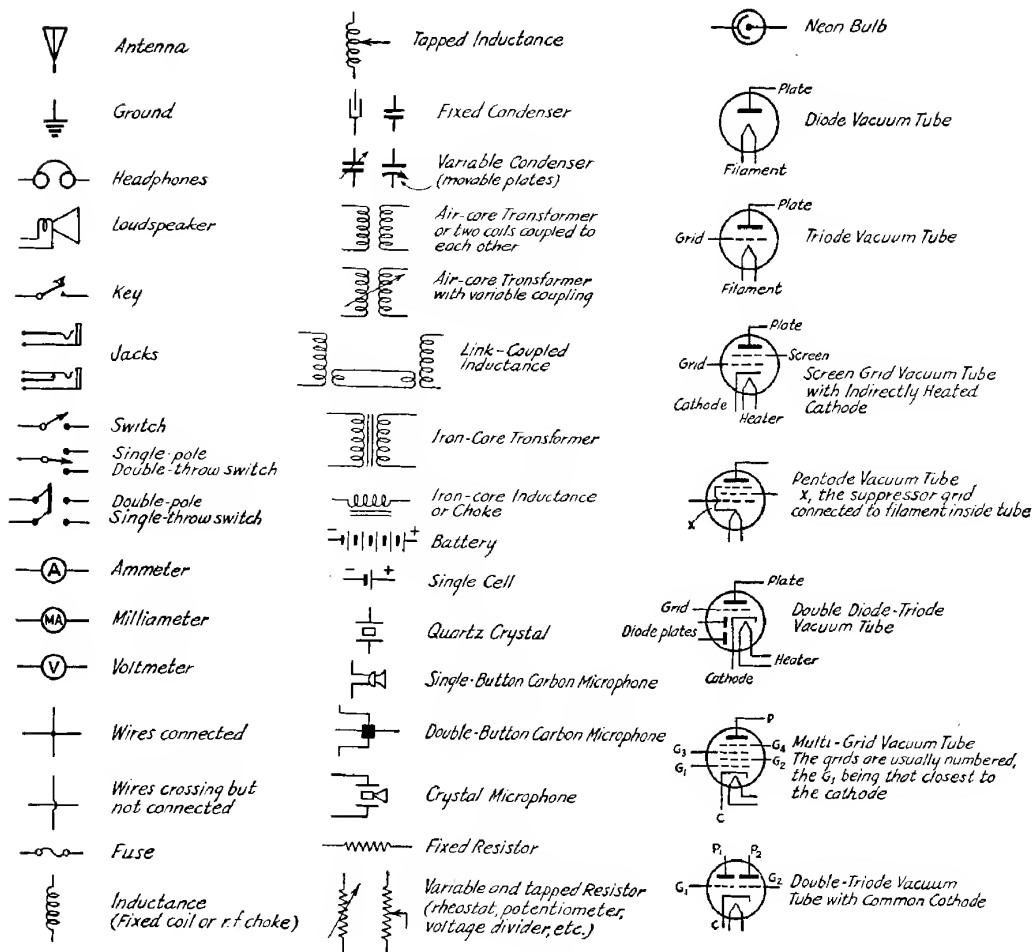 Antenna
Ground
Headphones
Loudspeaker
Key
Jacks
Switch
Single-pole
Double-throw switch
Double-pole
Single-throw switch
A
Ammeter
MA
Milliameter
V
Voltmeter
Wires connected
Wires crossing but
not connected
Fuse
Inductance
(Fixed coil or r.f choke)
Tapped Inductance
Fixed Condenser
Variable Condenser
(movable plates)
Air-core Transformer
or two coils coupled to
each other
Air-core Transformer
with variable coupling
Link-Coupled
Inductance
Iron-Core Transformer
Iron-core Inductance
or Choke
- +
Battery
- +
Single Cell
Quartz Crystal
Single-Button Carbon Microphone
Double-Button Carbon Microphone
Crystal Microphone
Fixed Resistor
Variable and tapped Resistor
(rheostat, potentiometer,
voltage divider, etc.)
Neon Bulb
Plate
Diode Vacuum Tube
Filament
Plate
Grid
Triode Vacuum Tube
Filament
Plate
Screen
Grid
Screen Grid Vacuum Tube
with Indirectly Heated
Cathode
Cathode
Heater
Pentode Vacuum Tube
X, the suppressor grid
connected to filament inside tube
X
Plate
Grid
Double Diode-Triode
Vacuum Tube
Diode plates
Heater
Cathode
P
G4
G3
G2
G1
Multi-Grid Vacuum Tube
The grids are usually numbered,
the G1 being that closest to
the cathode
C
P1 P2
G1
G2
Double-Triode Vacuum
Tube with Common Cathode
C